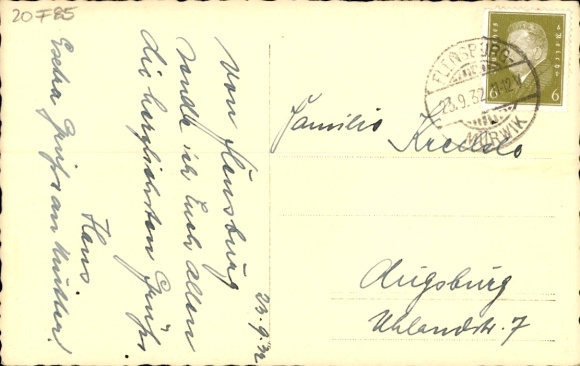 20785
Von Flensburg
sende ich Euch allen
die herzlichsten Grüße
Hans
Extra Gruß an Mutter!
23.9.32
Familie
Augsburg
Uhlandstr. 7
FLENSBURG-
23.9.32. 11-12 V
MÜRWIK
Deutsches Reich
6 6